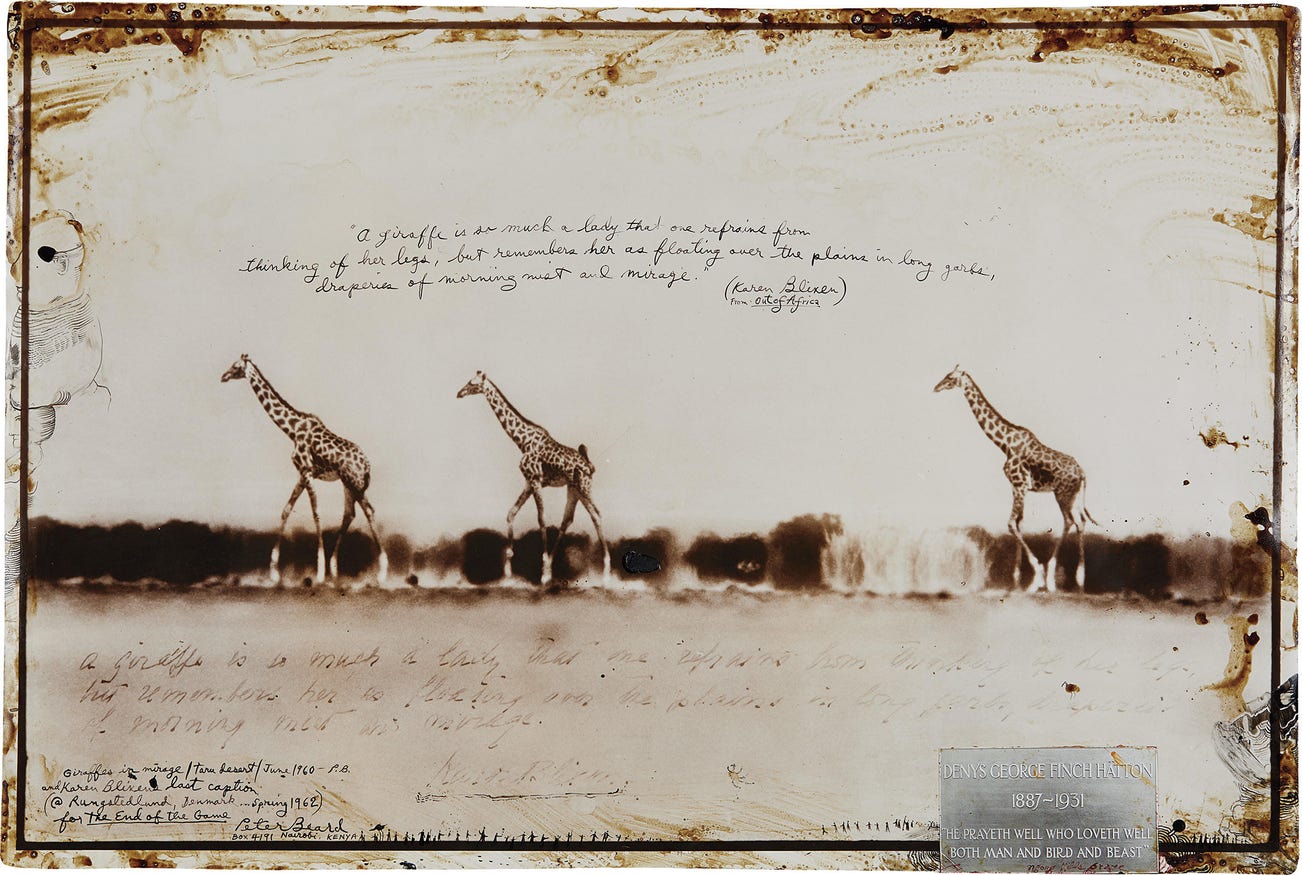 "A giraffe is so much a lady that one refrains from
thinking of her legs, but remembers her as floating over the plains in long garbs,
draperies of morning mist and mirage."
(Karen Blixen)
From: Out of Africa
a giraffe is so much a lady that one refrains from thinking of her legs
but remembers her as floating over the plains in long garbs, draperies
of morning mist and mirage.
Karen Blixen
Giraffes in mirage / Taru desert / June 1960 – P.B.
and Karen Blixens last caption
(@ Rungstedlund, Denmark ... Spring 1962)
for The End of the Game
Peter Beard
BOX 4191 Nairobi, KENYA
DENYS GEORGE FINCH HATTON
1887~1931
"HE PRAYETH WELL WHO LOVETH WELL
BOTH MAN AND BIRD AND BEAST"